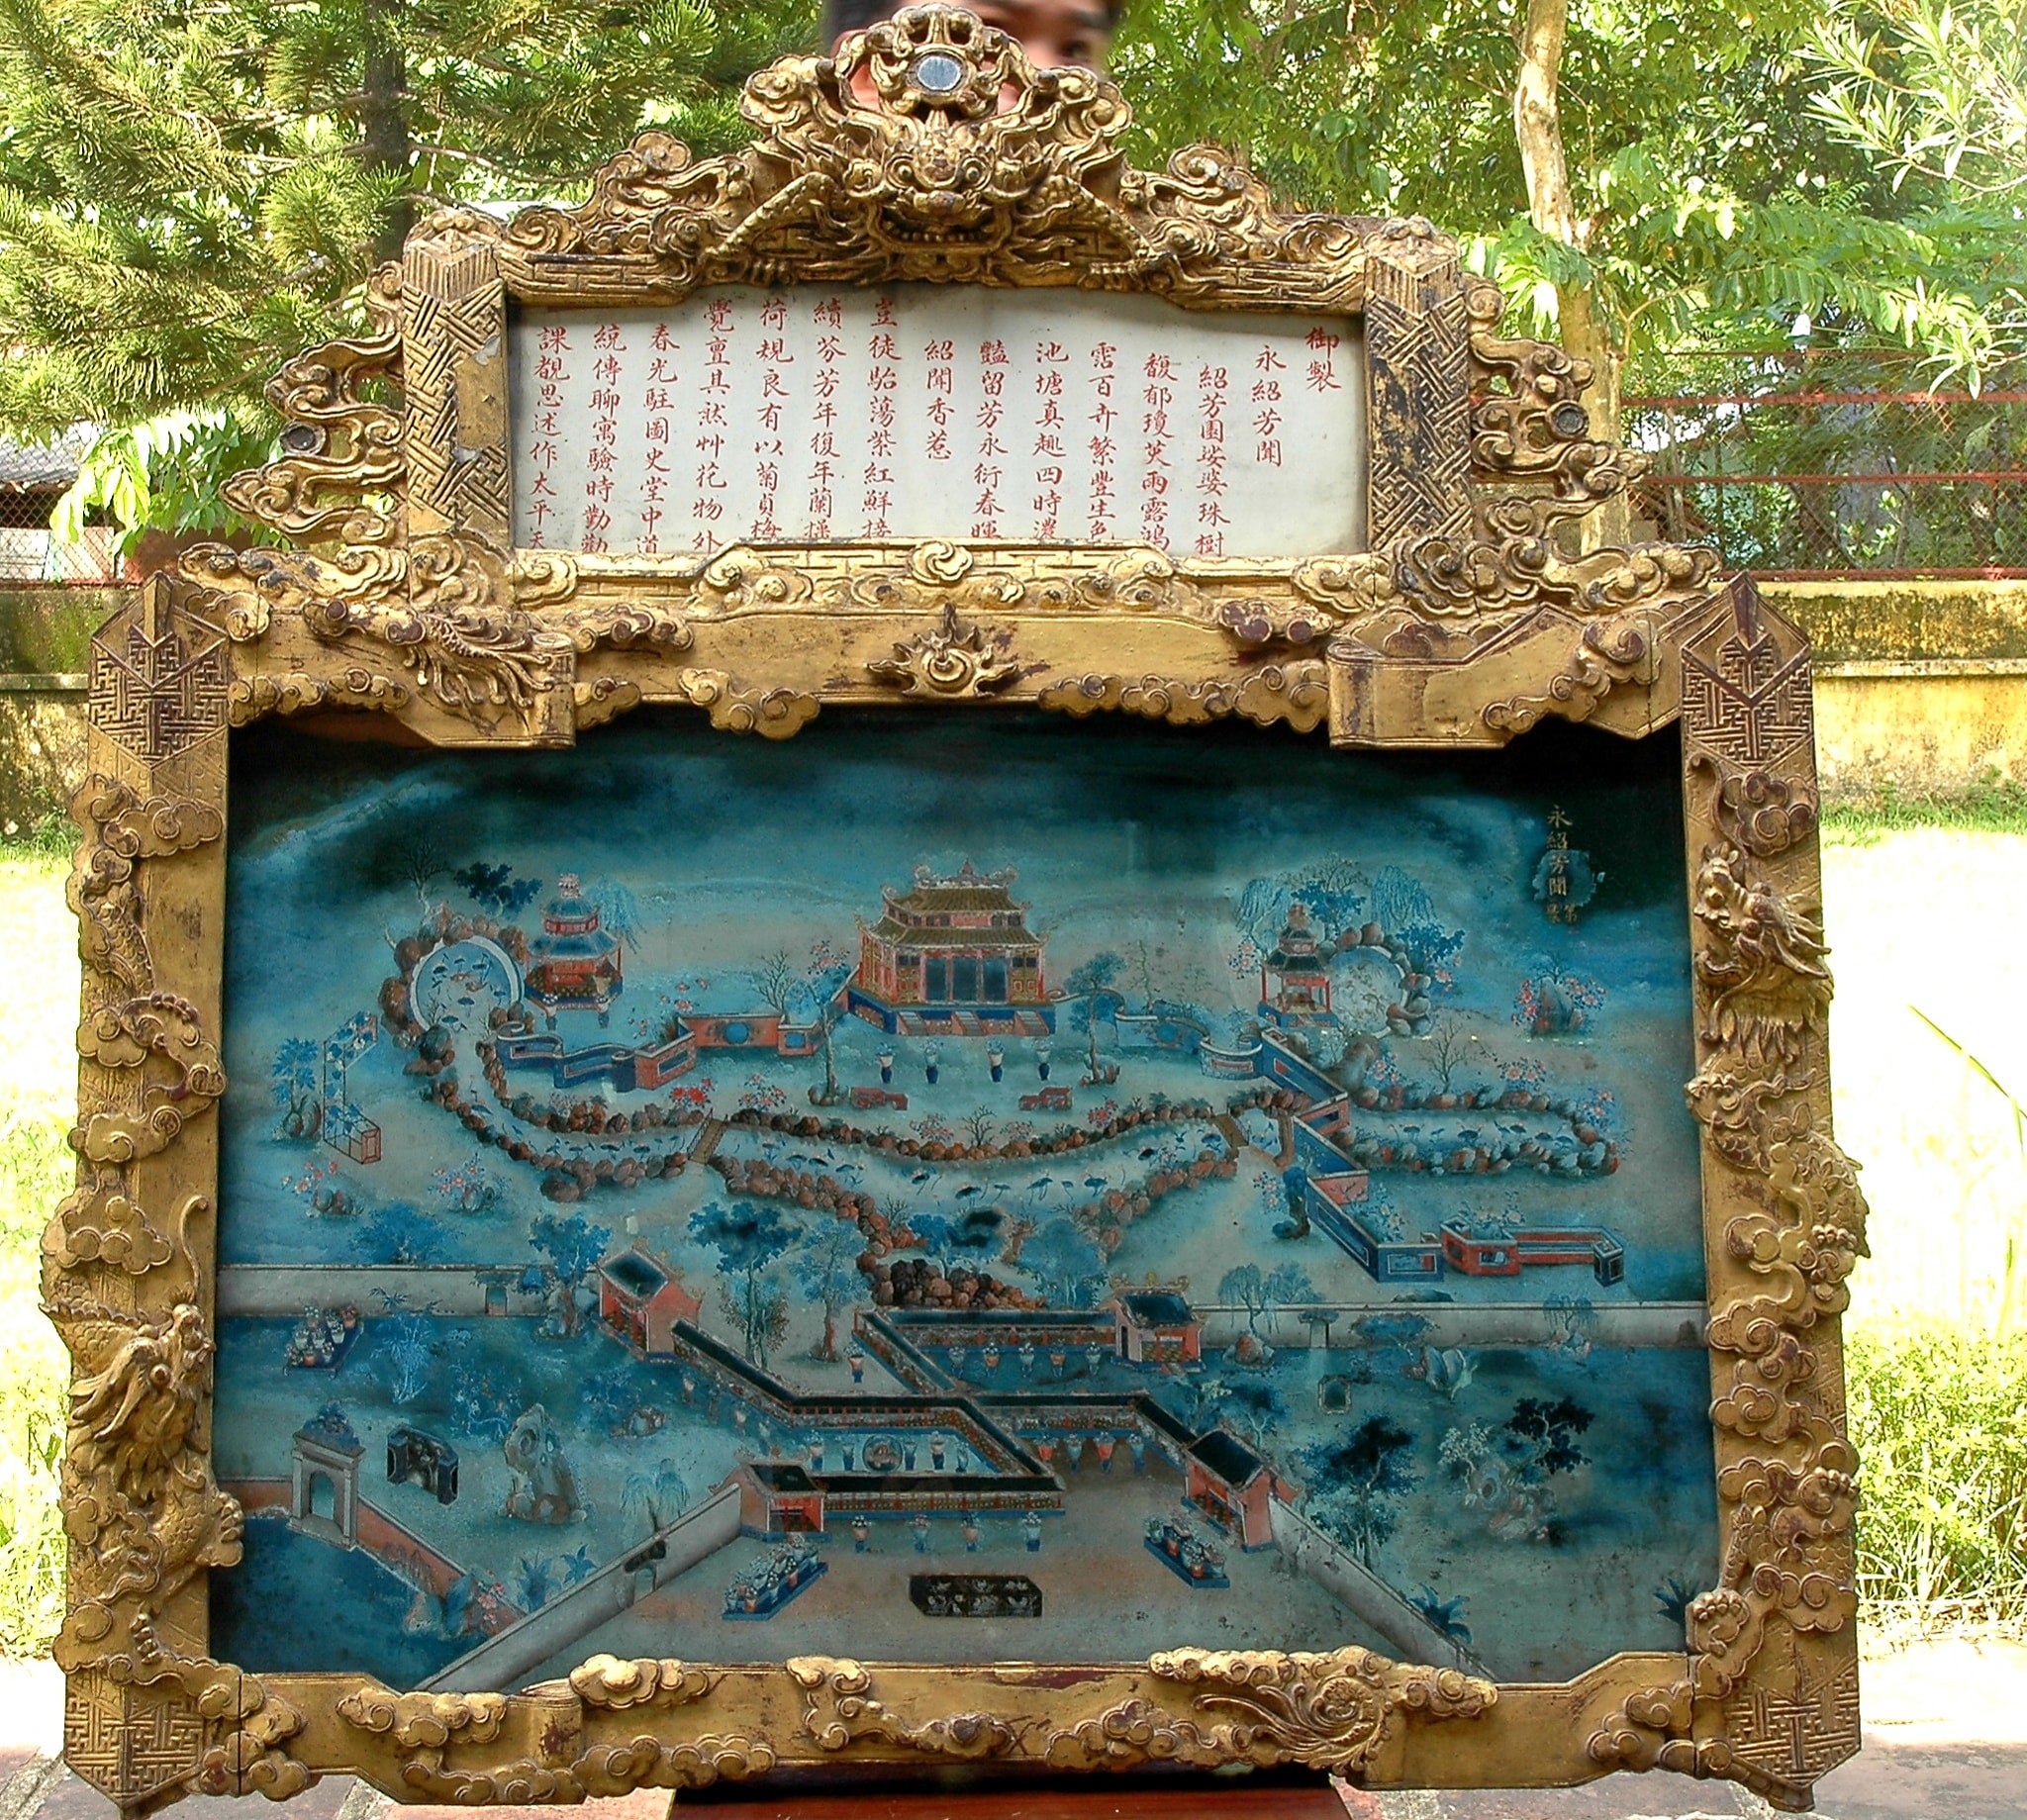 御製
永紹芳聞
紹芳園裟婆珠樹
馥郁瓊英雨露鴻
霑百卉繁豐生色
池塘真趣四時濃
豔留芳永衍春暉
紹聞香惹
豈徒駘蕩紫紅鮮接
續芬芳年復年蘭摧
荷規良有以菊貞梅
覺亶其然艸花物外
春光駐圖史堂中道
統傳聊寓驗時勤勸
課覩思述作太平天
永紹芳聞
第
景